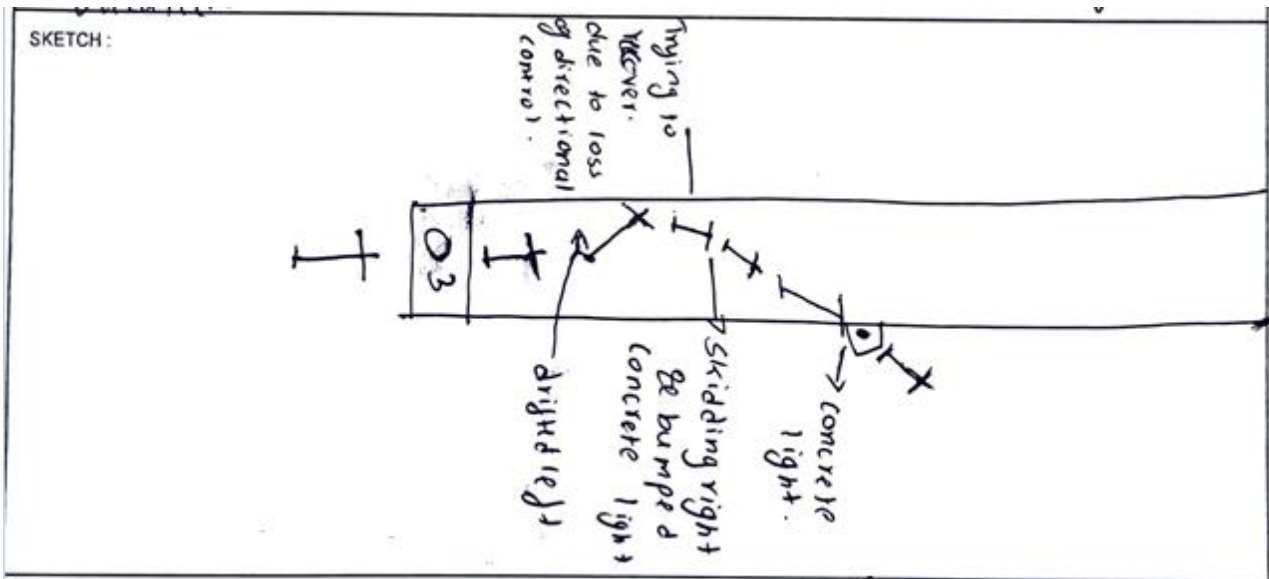 SKETCH:
Trying to
recover.
due to loss
of directional
control.
03
drifted left
Skidding right
& bumped
concrete light
concrete
light.